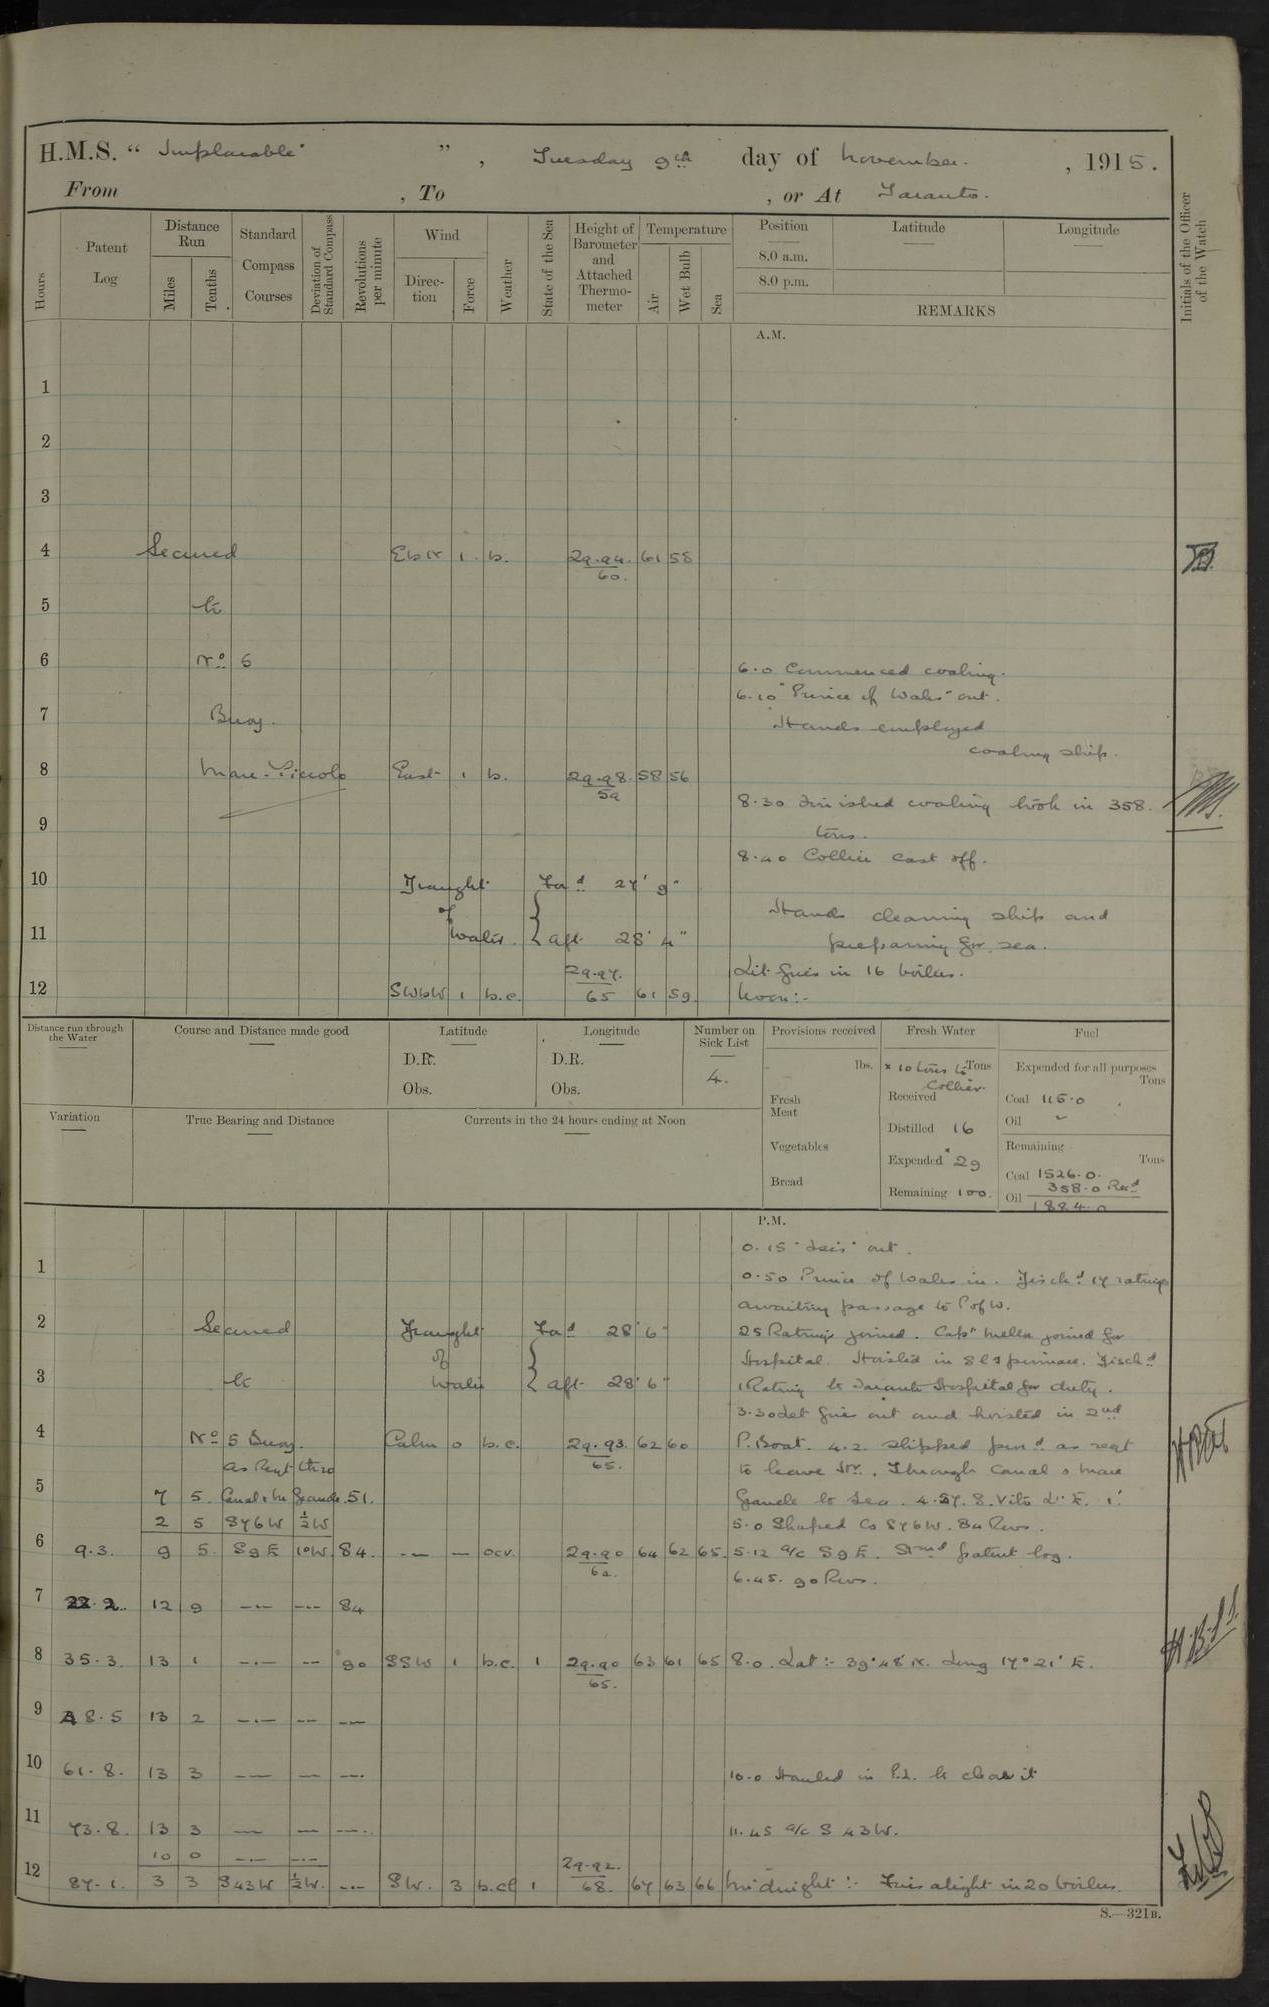 H.M.S. " Implacable " , Tuesday 9th day of November , 1915.
From , To , or At Taranto.
Hours
Patent Log
Distance Run
Miles
Tenths
Standard Compass Courses
Deviation of Standard Compass
Revolutions per minute
Wind
Direction
Force
Weather
State of the Sea
Height of Barometer and Attached Thermometer
Temperature
Air
Wet Bulb
Sea
Position
8.0 a.m.
8.0 p.m.
Latitude
Longitude
REMARKS
Initials of the Officer of the Watch
A.M.
1
2
3
4 Secured EbN 1 b. 29.94. 61 58
60.
5 to
6 No 6
6.0 Commenced coaling.
6.10 "Prince of Wales" out.
7 Buoy.
Hands employed
coaling ship.
8 Mare Piccolo East 1 b. 29.98. 58 56
59
8.30 Finished coaling took in 358.
9
tons.
8.40 Collier cast off.
10 Draught Ford 27' 9"
of
Hands cleaning ship and
11 Water. { aft 28' 4"
preparing for sea.
29.97. Lit fires in 16 boilers.
12 SWbW 1 b.c. 65 61 59. Noon:-
Distance run through the Water
Course and Distance made good
Latitude
D.R.
Obs.
Longitude
D.R.
Obs.
Number on Sick List
4.
Provisions received
lbs.
Fresh Meat
Vegetables
Bread
Fresh Water
x 10 tons to Tons
Collier
Received
Distilled 16
Expended x 29
Remaining 100.
Fuel
Expended for all purposes
Tons
Coal 115.0
Oil
Remaining
Tons
Coal 1526.0.
358.0 Recd
Oil 1884.0
Variation
True Bearing and Distance
Currents in the 24 hours ending at Noon
P.M.
0.15 out.
1
0.50 Prince of Wales in. Disch.d 17 ratings
awaiting passage to P of W.
2 Secured Draught Ford 28' 6" 25 Ratings joined. joined for
of Hospital. Hoisted in pinnace. Disch.d
3 to Water { aft 28' 6" 1 Rating to Taranto Hospital for duty.
3.30 Let fires out and hoisted in 2nd
4 No 5 Buoy. Calm 0 b.c. 29.93. 62 60 P. Boat. 4.2. slipped as reqt
as Reqt thro 65. to leave Hr. Through Canal & Mare
5 7 5. Canal & M. Grande. 51. Grande to Sea. 4.57. S. Vito Lt E. 1'.
2 5 S76W ½W 5.0 Shaped Co S76W. 84 Revs.
6 9.3. 9 5. S9E 10W 84. — — ocv. 29.90 64 62 65. 5.12 a/c S9E. patent log.
62.
6.45. 90 Revs.
7 22.2. 12 9 — — 84
8 35.3. 13 1 — — 90 SSW 1 b.c. 1 29.90 63 61 65 8.0. Lat:- 39°48' N. Long 17°21' E.
65.
9 48.5 13 2 — — —
10 61.8. 13 3 — — —. 10.0 Hauled in P.L. to clear it
11 73.8. 13 3 — — —. 11.45 a/c S43W.
10 0 — — 29.92.
12 87.1. 3 3 S43W ½W. — SW. 3 b.cl 1 68. 67 63 66 Midnight:- Fires alight in 20 boilers.
S.—321B.